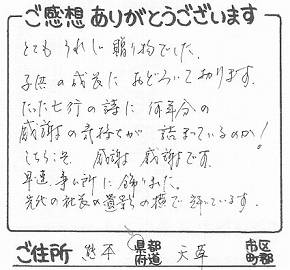 ご感想ありがとうございます
とても うれしい 贈り物でした。
子供の成長に おどろいて おります。
たった七行の詩に 何年分の
感謝の気持ちが 詰まっているのか!
こちらこそ 感謝 感謝です。
早速 事ム所に 飾りました。
先代の社長の遺影の横で 輝いています。
ご住所 熊本 都道府県 天草 市区町郡